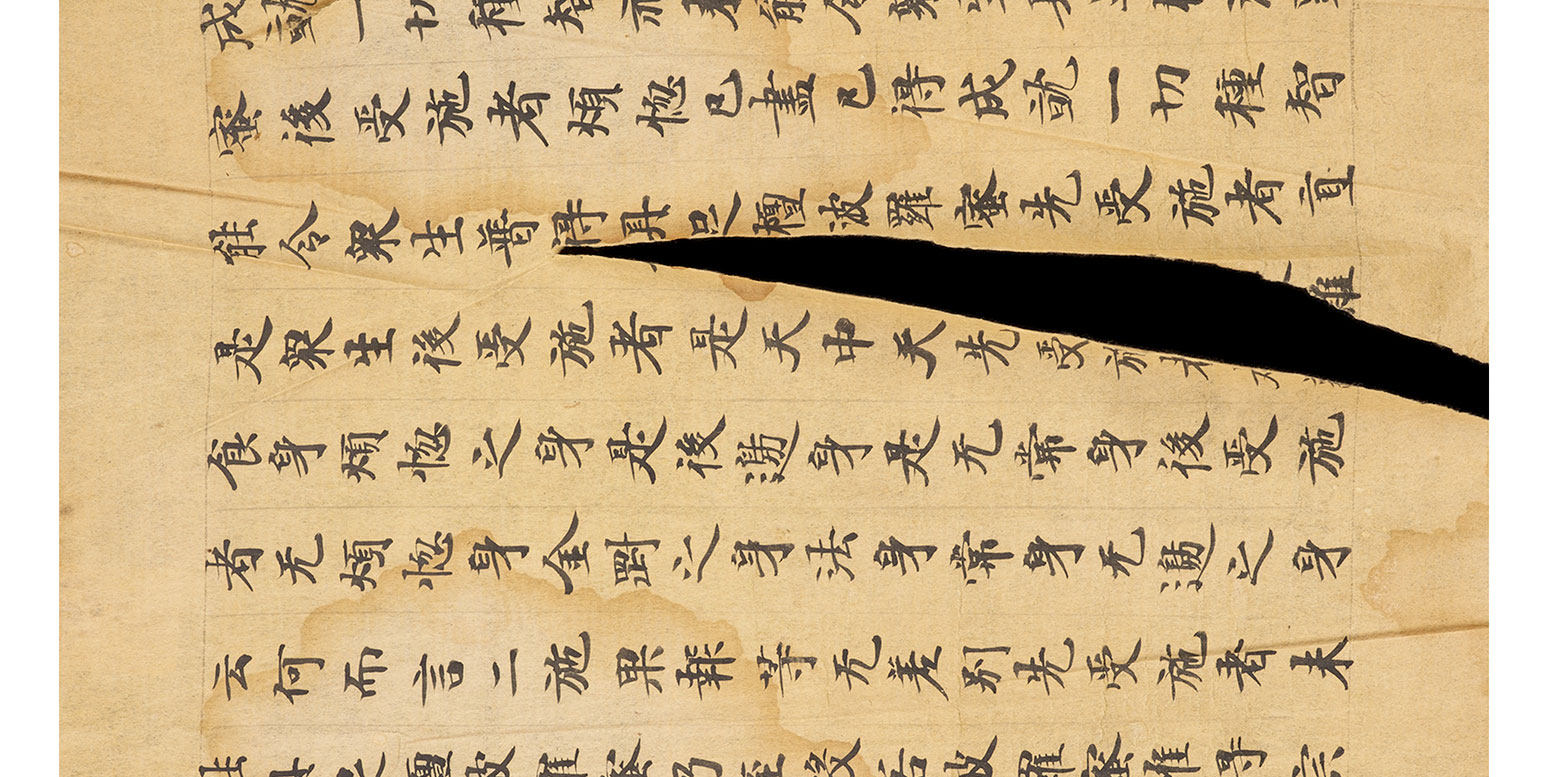 成就一切種智
蜜後受施者煩惱已盡已得成就一切種智
能令衆生普得具足檀波羅蜜先受施者直
是衆生後受施者是天中天先受施者雜
食身煩惱之身是後邊身是无常身後受施
者无煩惱身金剛之身法身常身无邊之身
云何而言二施果報等无差別先受施者未
檀波羅蜜乃至般若波羅蜜唯得